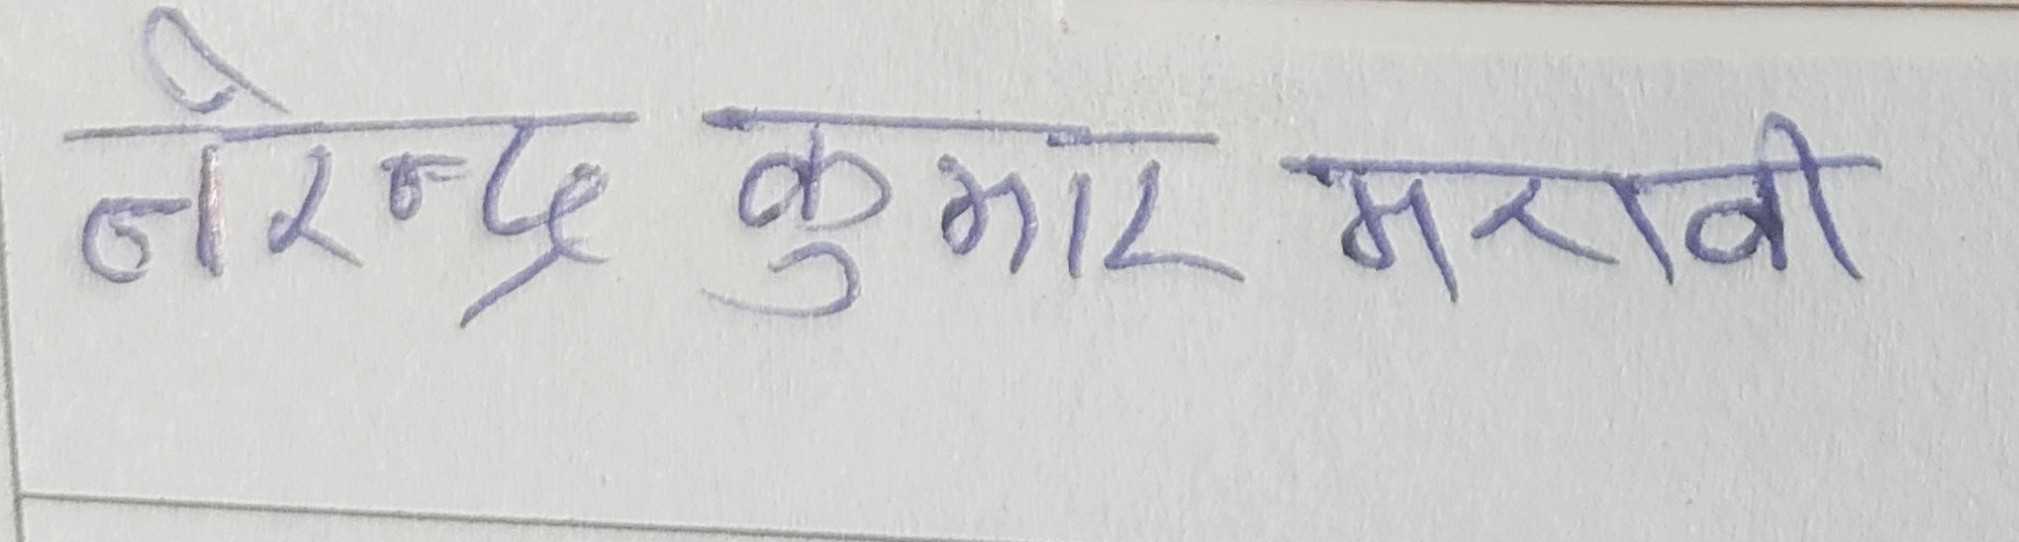 नेरन्द्र कुमार मरावी